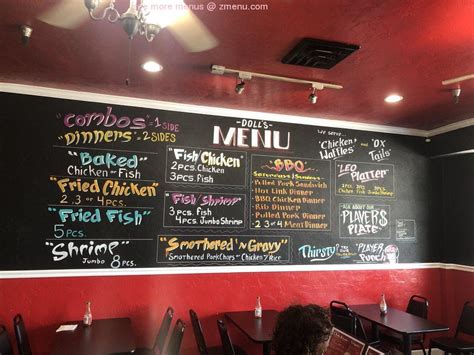 more menus @ zmenu.com
"Combos" - 1 SIDE
"Dinners" - 2 SIDES
"Baked"
Chicken or Fish
"Fried Chicken"
2. 3 or 4 PCS.
"Fried Fish"
5 PCS.
"Shrimp"
Jumbo 8 PCS.
- DOLL'S -
MENU
"Fish/Chicken"
2 PCS. Chicken
3 PCS. Fish
"Fish/Shrimp"
3 PCS. Fish
4 PCS. Jumbo Shrimp
"Smothered 'N Gravy"
Smothered PorkChops or Chicken / Rice
"BBQ"
Pulled Pork Sandwich
Hot Link Dinner
BBQ Chicken Dinner
Rib Dinner
Pulled Pork Dinner
2 or 3 Meat Dinner
WE SERVE..
"Chicken & Waffles" and "OX Tails"
"LEO Platter"
ASK ABOUT OUR
PLAYER'S PLATE
Thirsty?
TRY
"PLAYER Punch"